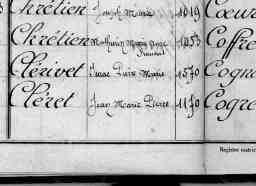 Chrétien Joseph Marie 1019 Cœur
Chrétien Mathurin Marie Ange 1053 Coffre
Clérivet Isaac Marie 1570 Cogn
Cléret Jean Marie Pierre 1170 Cogre
Registre